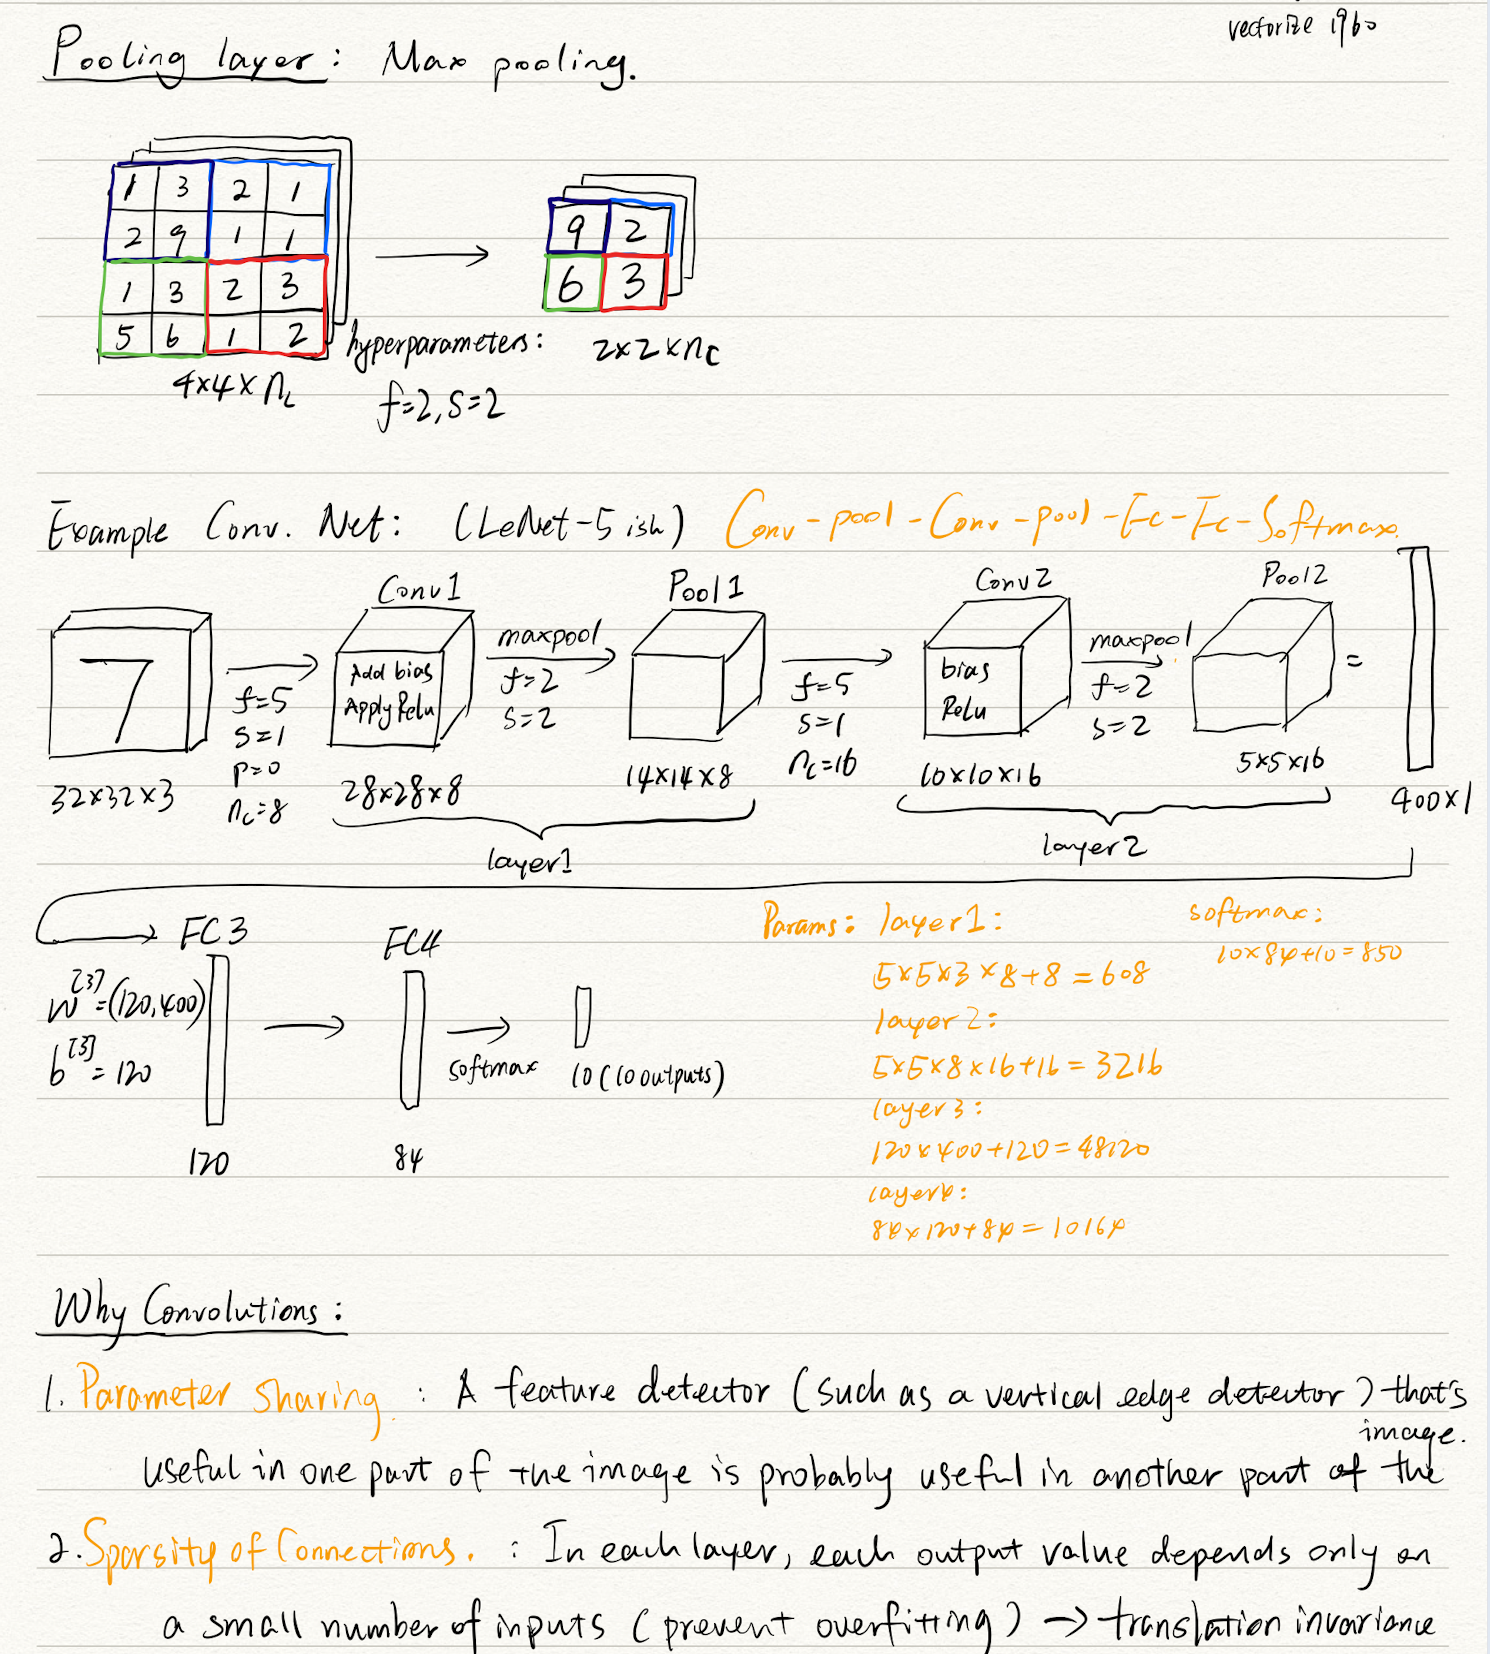 vectorize 1960
Pooling layer: Max pooling.
1 3 2 1
2 9 1 1
1 3 2 3
5 6 1 2
9 2
6 3
4x4x nc
hyperparameters:
f=2, s=2
2x2xnc
Example Conv. Net: (LeNet-5 ish) Conv-pool-Conv-pool-Fc-Fc-Softmax.
7
32x32x3
f=5
s=1
p=0
nc=8
Conv1
Add bias
Apply Relu
28x28x8
maxpool
f=2
s=2
Pool1
14x14x8
layer1
f=5
s=1
nc=16
Conv2
bias
Relu
10x10x16
maxpool
f=2
s=2
Pool2
5x5x16
layer2
=
400x1
FC3
W[3]=(120,400)
b[3]=120
120
FC4
84
softmax
10(10 outputs)
Params: layer1:
5x5x3x8+8=608
layer2:
5x5x8x16+16=3216
layer3:
120x400+120=48120
layer4:
84x120+84=10164
softmax:
10x84+10=850
Why Convolutions:
1. Parameter sharing. : A feature detector (such as a vertical edge detector) that's
useful in one part of the image is probably useful in another part of the image.
2. Sparsity of Connections. : In each layer, each output value depends only on
a small number of inputs (prevent overfitting) → translation invariance